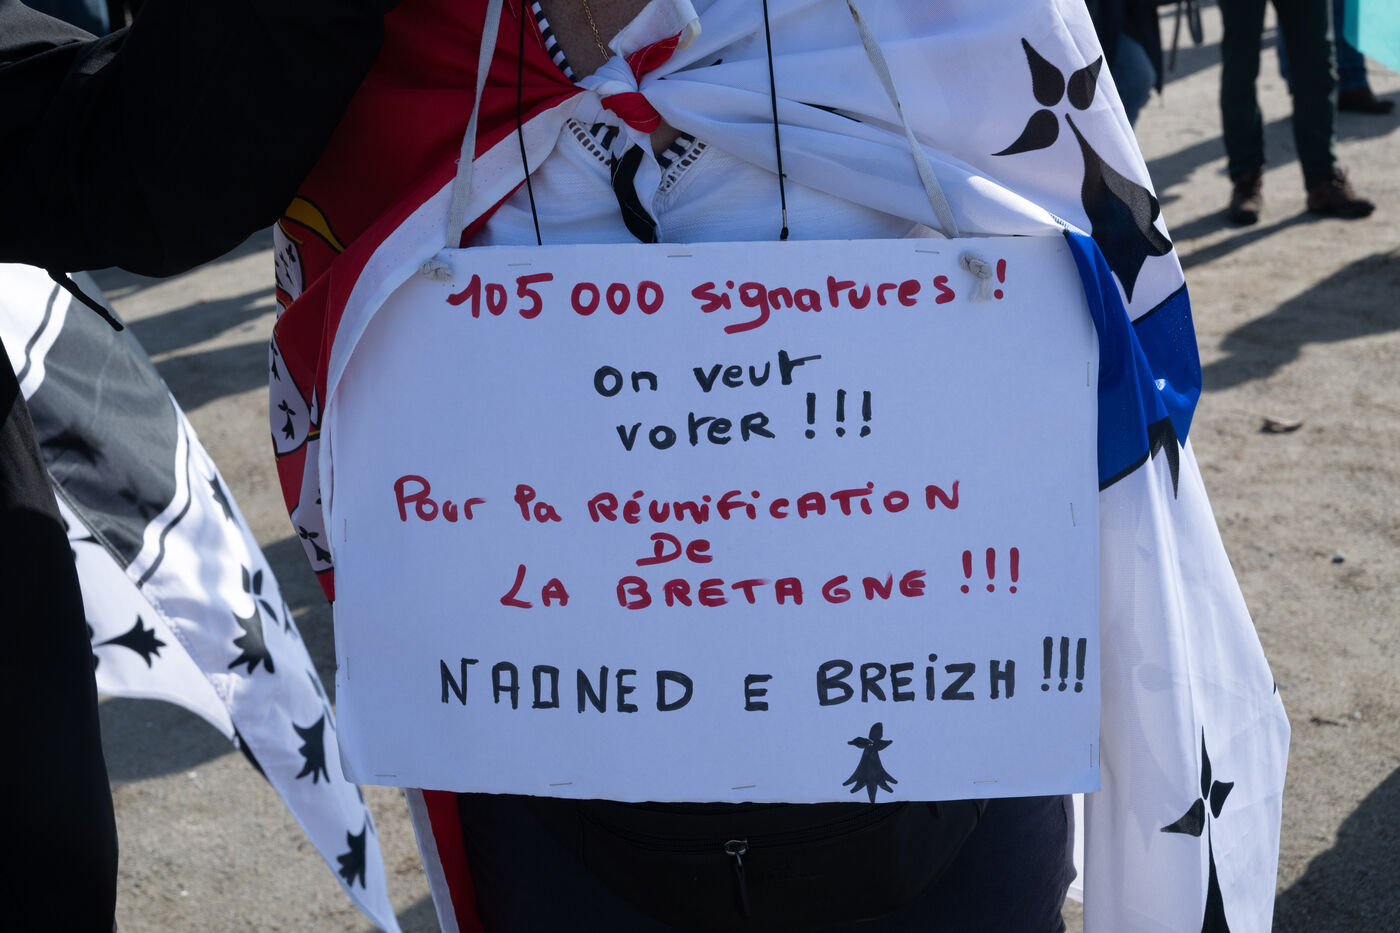 105 000 signatures !
on veut
voter !!!
Pour la Réunification
De
LA BRETAGNE !!!
NAONED E BREiZH !!!